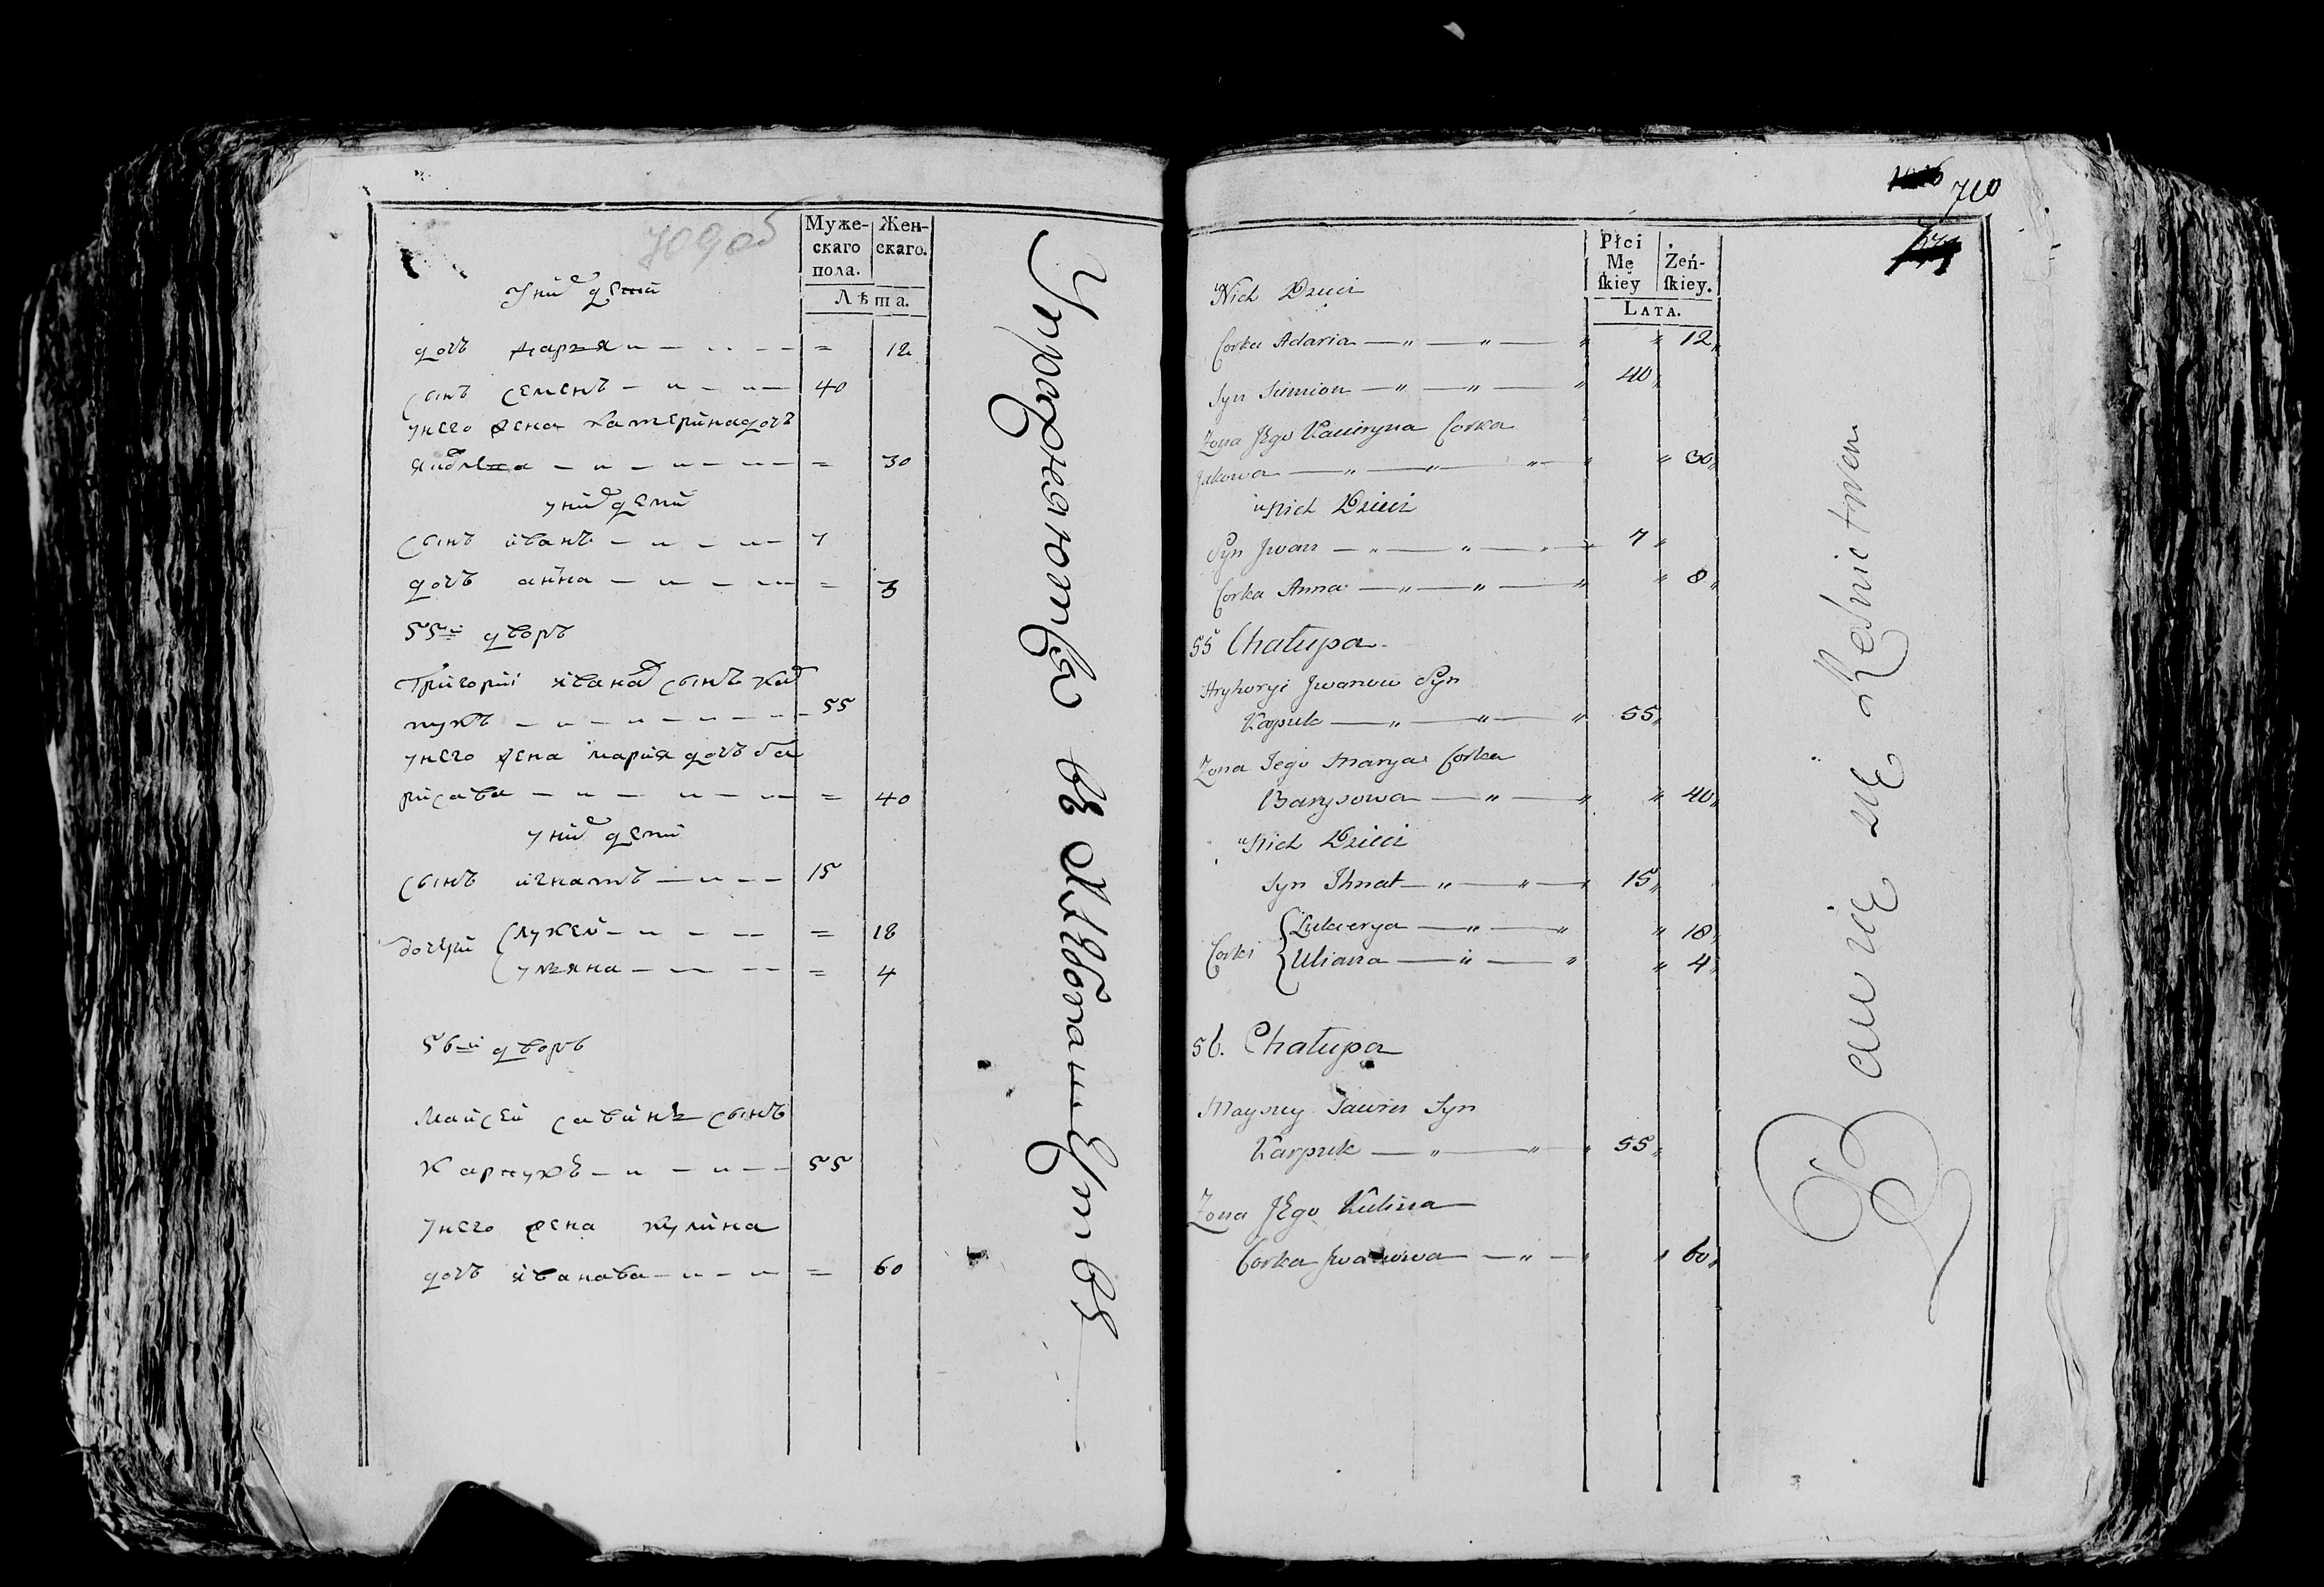 709об
Муже-
скаго
пола.
Жен-
скаго.
Лѣта.
У них дети
дочь дарья 12
сынъ семенъ 40
унего жена катерина дочь
якавлева 30
у них дети
сынъ иванъ 7
дочь анна 3
55й дворъ
Григориі ивана сынъ ка
пукъ 55
унего жена мария дочь ба
рисава 40
у них дети
сынъ игнатъ 15
дочери лукея 18
ульяна 4
56й дворъ
Майсей савинъ сынъ
Карпукъ 55
Унего жена кулина
дочь иванава 60
Упражняются в хлебопашестве
710
Płci
Mę
ſkiey
Żeń-
ſkiey.
LATA.
u Nich Dzieci
Corka Adaria 12
Syn Simion 40
Zona Jego Kaciryna Corka
Jakowa 30
u Nich Dzieci
Syn Jwan 7
Corka Anna 8
55 Chałupa
Hryhoryi Jwanow Syn
Kapuk 55
Zona Jego Marya Corka
Barysowa 40
u Nich Dzieci
Syn Ihnat 15
Corki Lukierya 18
Uliana 4
56. Chałupa
Maysiey Sawin Syn
Karpuk 55
Zona Jego Kulina
Corka Jwanowa 60
Bawią się Rolnictwem